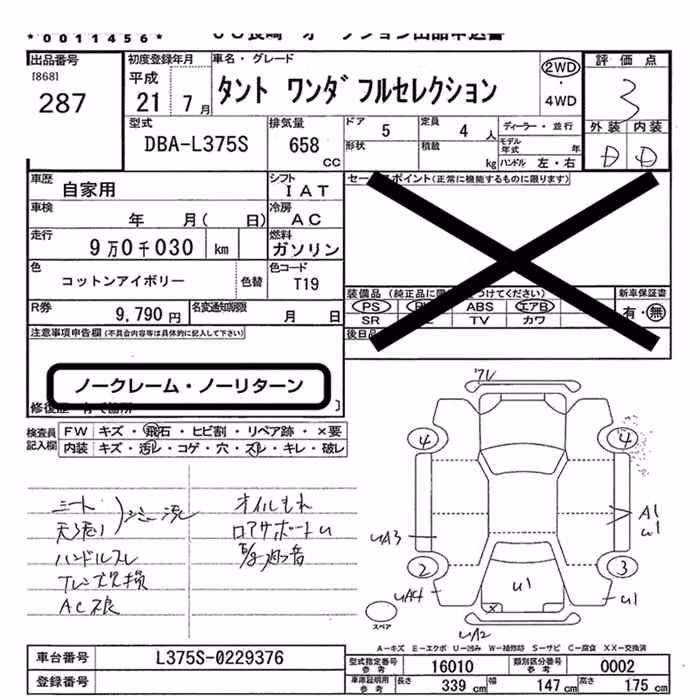 *0011456*
出品番号
[868]
287
初度登録年月
平成
21 7月
車名・グレード
タント ワンダフルセレクション
2WD
・
4WD
評価点
3
外装 内装
D D
型式
DBA-L375S
排気量
658
CC
ドア
5
定員
4 人
ディーラー・並行
形状
積載
kg
モデル年式
年
ハンドル 左・右
車歴
自家用
シフト
IAT
車検
年 月( 日)
冷房
AC
走行
9万0千030 km
燃料
ガソリン
色
コットンアイボリー
色替
色コード
T19
R券
9,790円
名変通知期限
月 日
セー ポイント(正常に機能するものに限ります)
装備品 (純正品に つけてください)
PS ABS エアB
SR TV カワ
新車保証書
有・無
後日
注意事項申告欄(不具合内容等は具体的に記入して下さい)
ノークレーム・ノーリターン
検査員
記入欄
FW キズ・飛石・ヒビ割・リペア跡・×要
内装 キズ・汚レ・コゲ・穴・スレ・キレ・破レ
シート
ハンドルスレ
オイルもれ
ロアサポートU
4 4
UA3
A1
W1
2 3
UA4
U1
U1
UA2
スペア
A-キズ E-エクボ U-凹み W-補修跡 S-サビ C-腐食 XX-交換済
車台番号
L375S-0229376
登録番号
型式指定番号
参考
16010
類別区分番号
参考
0002
車庫証明用
参考
長さ 339cm 幅 147cm 高さ 175cm